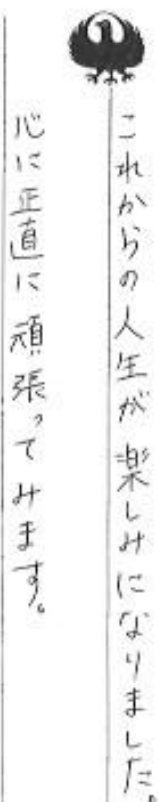 これからの人生が楽しみになりました。
心に正直に頑張ってみます。